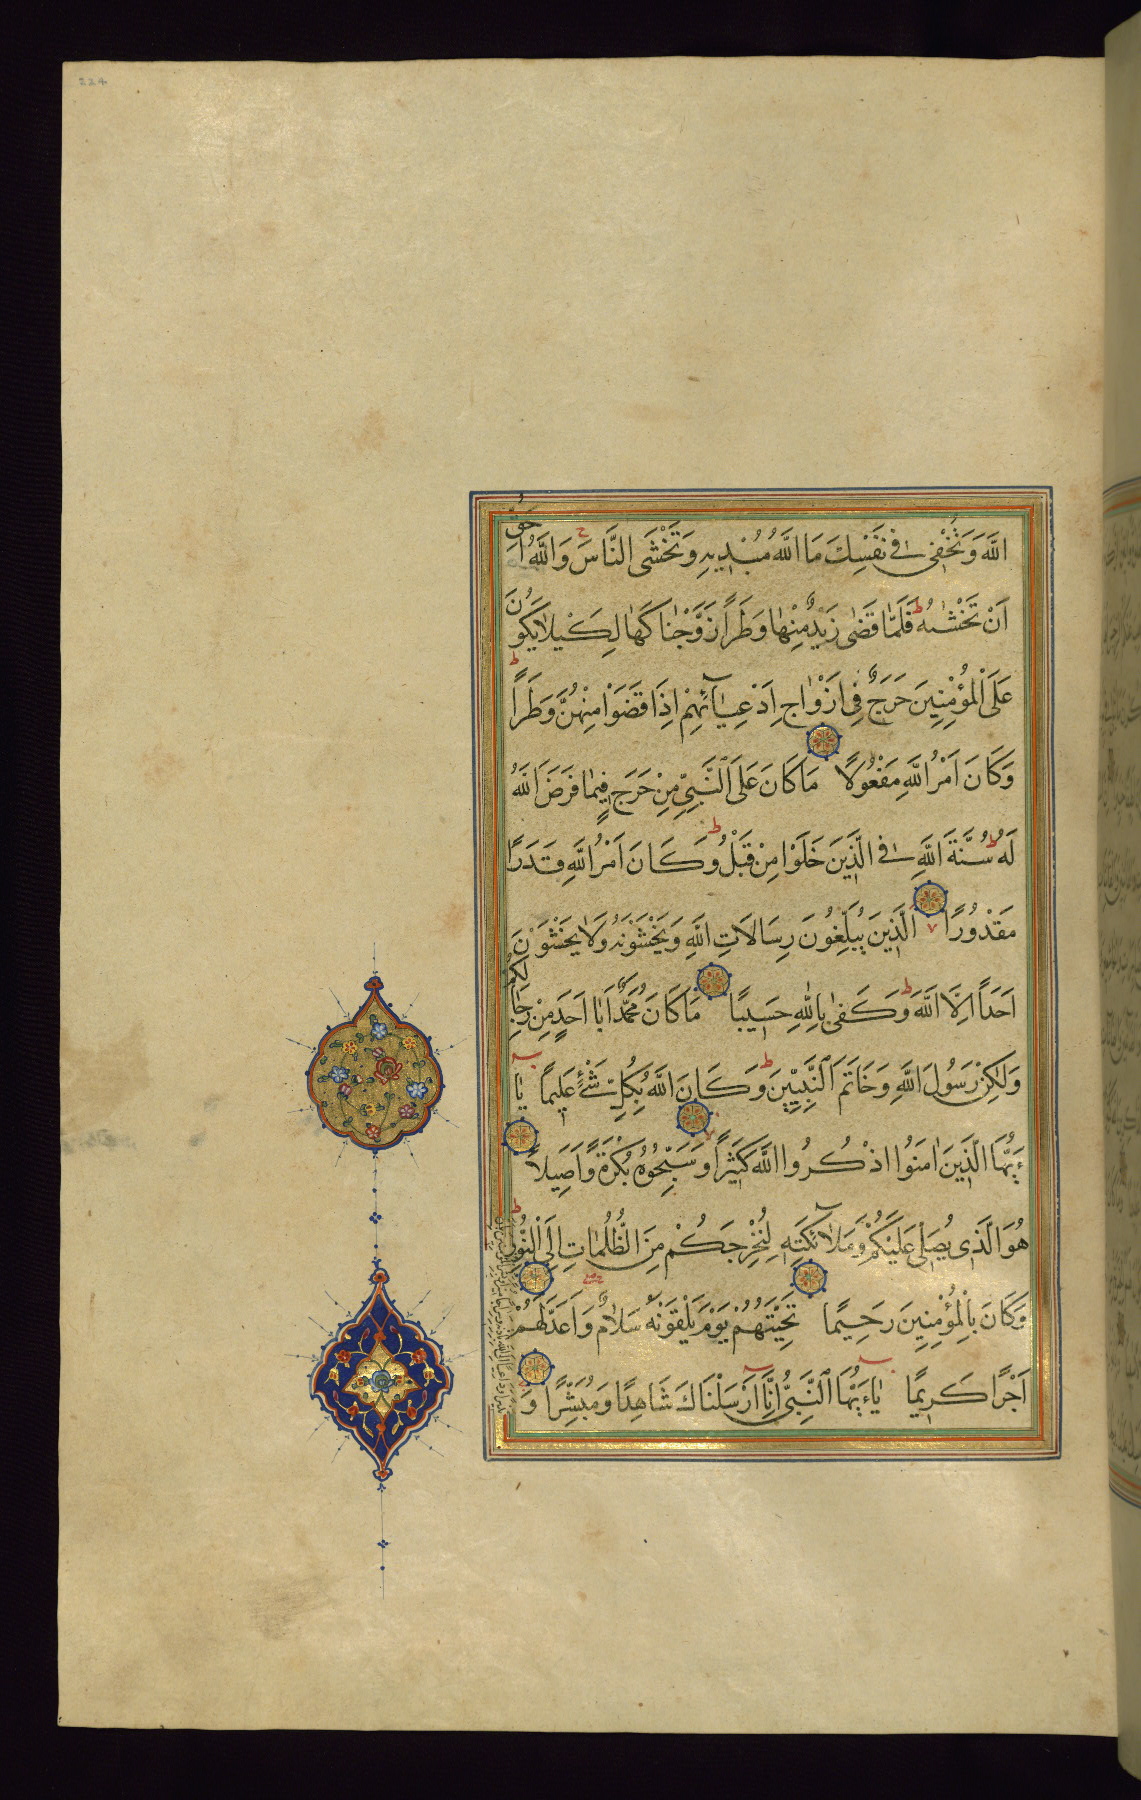 224
اللَّهَ وَتُخْفِي فِي نَفْسِكَ مَا اللَّهُ مُبْدِيهِ وَتَخْشَى النَّاسَ وَاللَّهُ اَحَقُّ
اَنْ تَخْشٰىهُ ط فَلَمَّا قَضٰى زَيْدٌ مِنْهَا وَطَرًا زَوَّجْنَاكَهَا لِكَيْلَا يَكُونَ
عَلَى الْمُؤْمِنِينَ حَرَجٌ فِي اَزْوَاجِ اَدْعِيَآئِهِمْ اِذَا قَضَوْا مِنْهُنَّ وَطَرًا ط
وَكَانَ اَمْرُ اللَّهِ مَفْعُولًا مَا كَانَ عَلَى النَّبِيِّ مِنْ حَرَجٍ فِيمَا فَرَضَ اللَّهُ
لَهُ ط سُنَّةَ اللَّهِ فِي الَّذِينَ خَلَوْا مِنْ قَبْلُ ط وَكَانَ اَمْرُ اللَّهِ قَدَرًا
مَقْدُورًا الَّذِينَ يُبَلِّغُونَ رِسَالَاتِ اللَّهِ وَيَخْشَوْنَهُ وَلَا يَخْشَوْنَ
اَحَدًا اِلَّا اللَّهَ ط وَكَفٰى بِاللَّهِ حَسِيبًا مَا كَانَ مُحَمَّدٌ اَبَا اَحَدٍ مِنْ رِجَالِكُمْ
وَلٰكِنْ رَسُولَ اللَّهِ وَخَاتَمَ النَّبِيِّينَ ط وَكَانَ اللَّهُ بِكُلِّ شَيْءٍ عَلِيمًا يَا
ءَيُّهَا الَّذِينَ اٰمَنُوا اذْكُرُوا اللَّهَ ذِكْرًا كَثِيرًا وَسَبِّحُوهُ بُكْرَةً وَاَصِيلًا
هُوَ الَّذِي يُصَلِّي عَلَيْكُمْ وَمَلٰٓائِكَتُهُ لِيُخْرِجَكُمْ مِنَ الظُّلُمَاتِ اِلَى النُّورِ ط
وَكَانَ بِالْمُؤْمِنِينَ رَحِيمًا تَحِيَّتُهُمْ يَوْمَ يَلْقَوْنَهُ سَلَامٌ وَاَعَدَّ لَهُمْ
اَجْرًا كَرِيمًا يَاءَيُّهَا النَّبِيُّ اِنَّا اَرْسَلْنَاكَ شَاهِدًا وَمُبَشِّرًا وَ